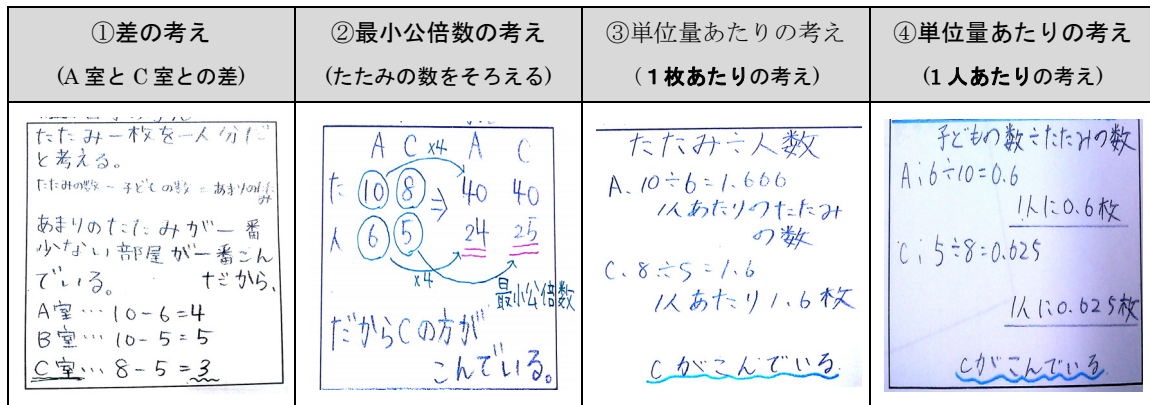 ①差の考え
(A室とC室との差)
②最小公倍数の考え
(たたみの数をそろえる)
③単位量あたりの考え
(1枚あたりの考え)
④単位量あたりの考え
(1人あたりの考え)
たたみ一枚を一人分だ
と考える。
たたみの数-子どもの数=あまりのたた
み
あまりのたたみが一番
少ない部屋が一番こん
でいる。 だから、
A室…10-6=4
B室…10-5=5
C室…8-5=3
A C ×4 A C
た 10 8 ⇒ 40 40
人 6 5 24 25
×4
最小公倍数
だからCの方が
こんでいる。
たたみ÷人数
A. 10÷6=1.666
1人あたりのたたみ
の数
C. 8÷5=1.6
1人あたり1.6枚
Cがこんでいる
子どもの数÷たたみの数
A;6÷10=0.6
1人に0.6枚
C;5÷8=0.625
1人に0.625枚
Cがこんでいる